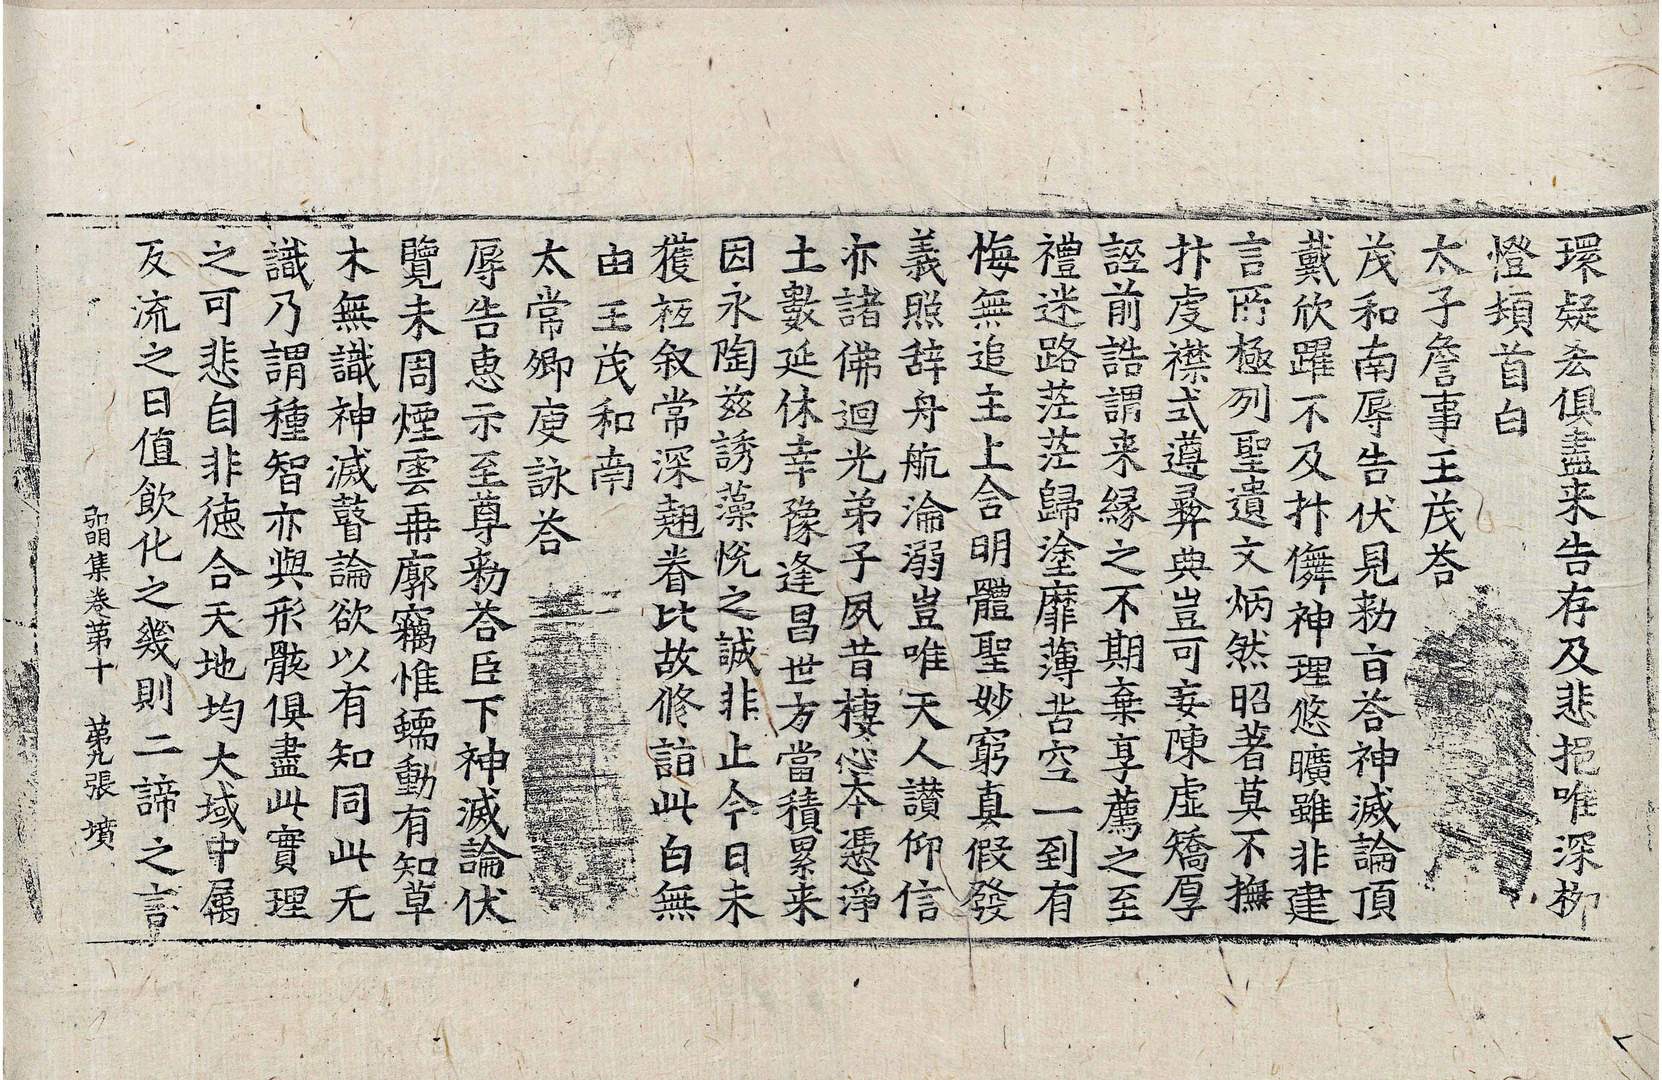 環疑於俱盡来告存及悲挹唯深柳
憕頓首白
太子詹事王茂荅
茂和南辱告伏見勑旨荅神滅論頂
戴欣躍不及抃儛神理悠曠雖非建
言所極列聖遺文炳然昭著莫不撫
抃虔襟式遵彛典豈可妄陳虛矯厚
誣前誥謂来縁之不期棄享薦之至
禮迷路茫茫歸塗靡薄苦空一到有
悔無追主上含明體聖妙窮真假發
義照辞舟航淪溺豈唯天人讃仰信
亦諸佛迴光弟子夙昔棲心本憑淨
土數延休幸豫逢昌世方當積累来
因永陶兹誘藻悅之誠非止今日未
獲祗叙常深翹眷比故修詣此白無
由王茂和南
太常卿庾詠荅
辱告惠示至尊勑荅臣下神滅論伏
覽未周煙雲再廓竊惟蠕動有知草
木無識神滅瞽論欲以有知同此无
識乃謂種智亦與形骸俱盡此實理
之可悲自非德合天地均大域中属
反流之日值飲化之幾則二諦之言
弘明集卷第十　第九張　墳